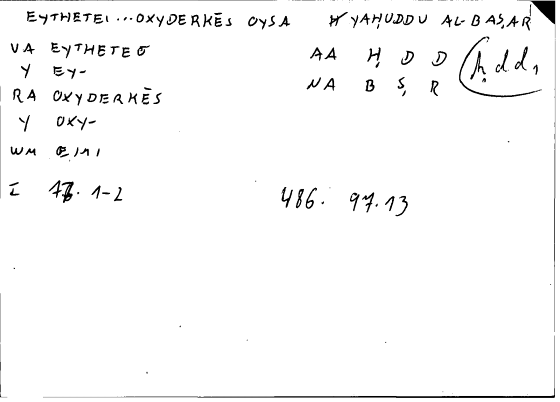 EYTHETEI...OXYDERKĒS OYSA YAḤUDDU AL-BAṢAR
VA EYTHETEO AA Ḥ D D ḥdd1
Y EY- NA B Ṣ R
RA OXYDERKĒS
Y OXY-
WM EIMI
I 1-2 486. 97.13